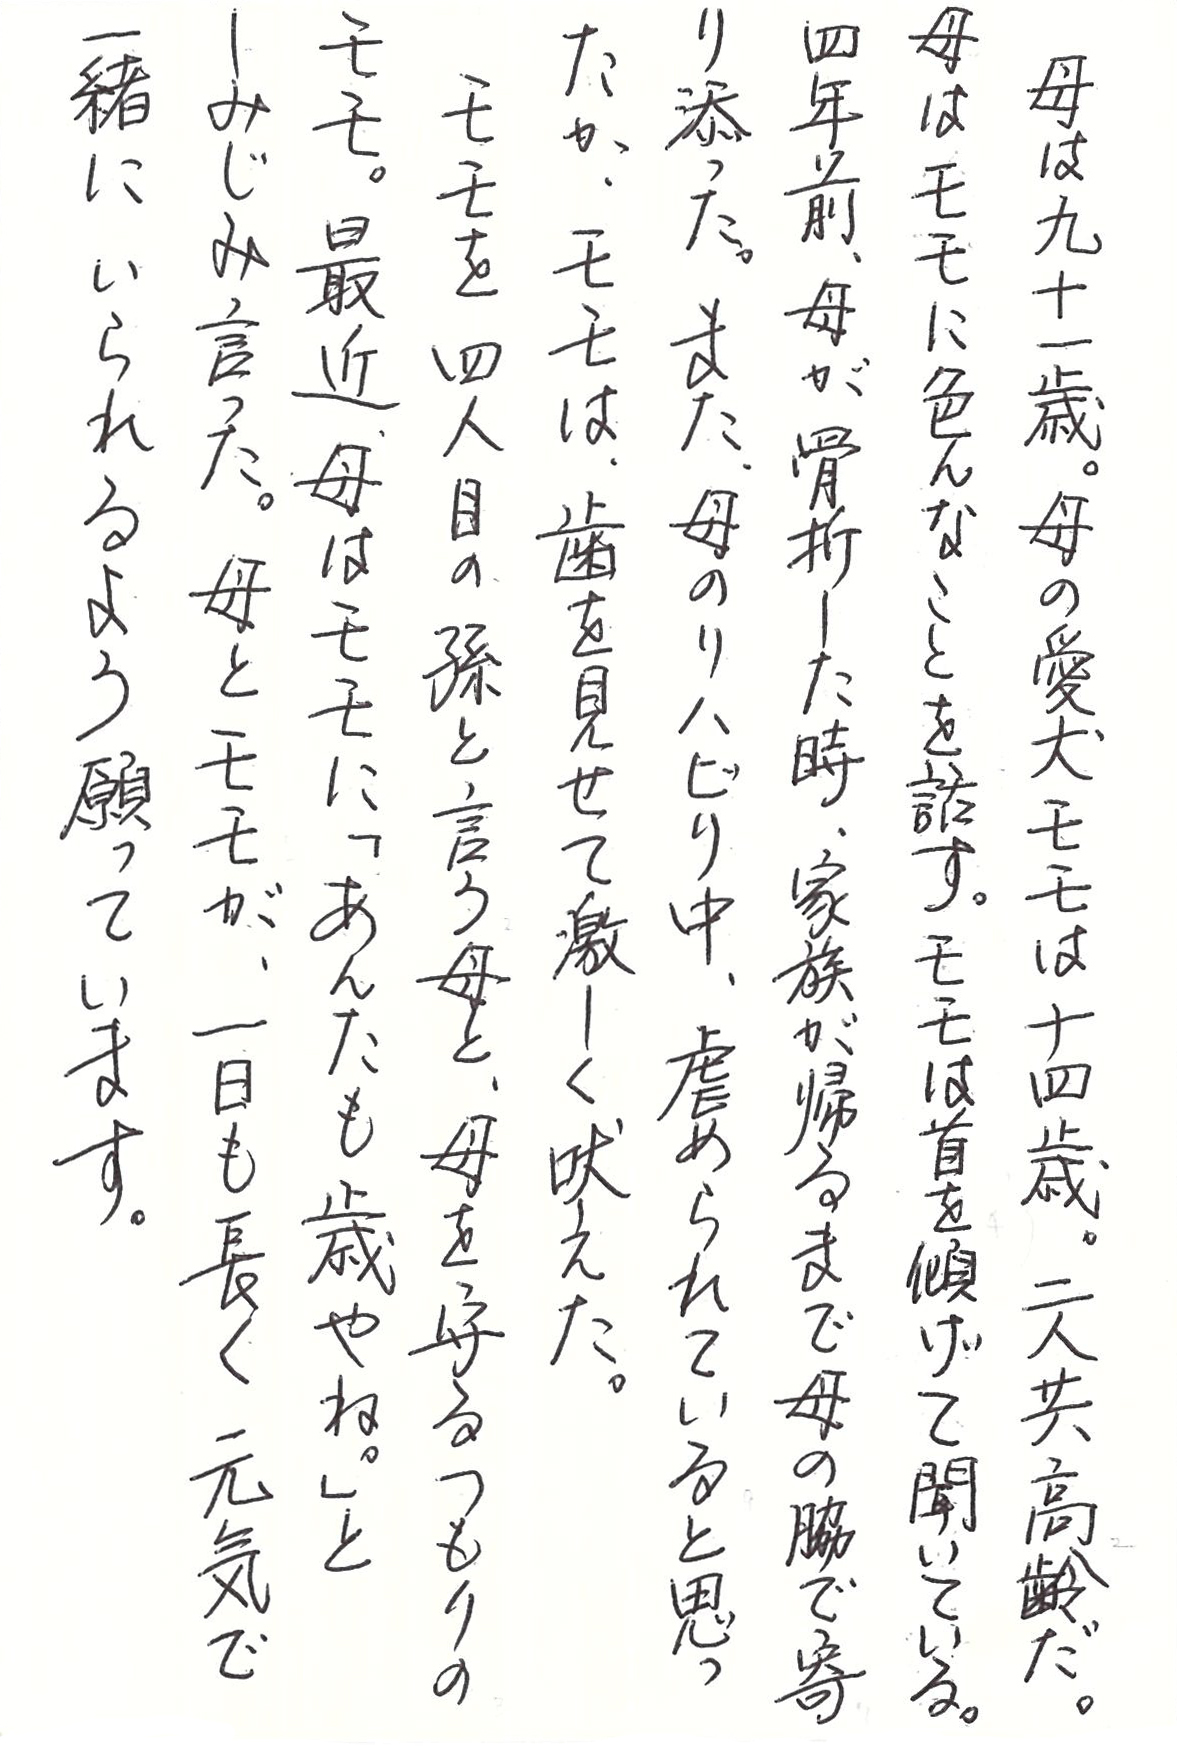 母は九十一歳。母の愛犬モモは十四歳。二人共高齢だ。
母はモモに色んなことを話す。モモは首を傾げて聞いている。
四年前、母が骨折した時、家族が帰るまで母の脇で寄
り添った。また、母のリハビリ中、虐められていると思っ
たか、モモは、歯を見せて激しく吠えた。
モモを四人目の孫と言う母と、母を守るつもりの
モモ。最近、母はモモに「あんたも歳やね。」と
しみじみ言った。母とモモが、一日も長く元気で
一緒にいられるよう願っています。